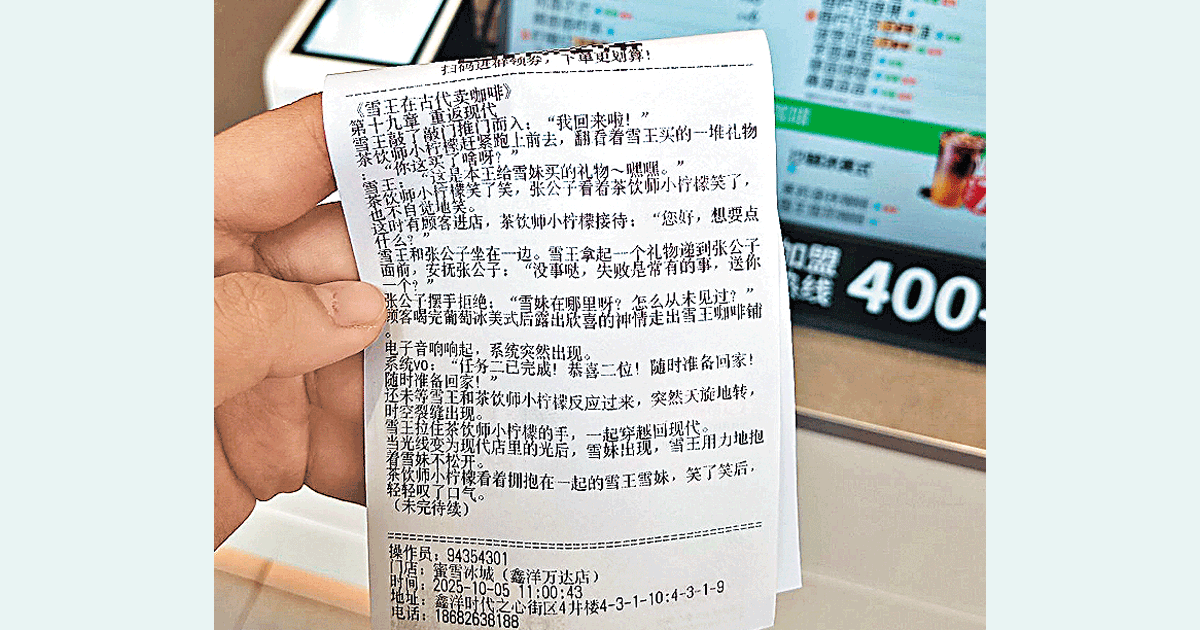 扫码进群领券，下单更划算！
《雪王在古代卖咖啡》
第十九章 重返现代
雪王敲了敲门推门而入：“我回来啦！”
茶饮师小柠檬赶紧跑上前去，翻看着雪王买的一堆礼物
：“你这买了啥呀？”
雪王：“这是本王给雪妹买的礼物~嘿嘿。”
茶饮师小柠檬笑了笑，张公子看着茶饮师小柠檬笑了，
也不自觉地笑。
这时有顾客进店，茶饮师小柠檬接待：“您好，想要点
什么？”
雪王和张公子坐在一边。雪王拿起一个礼物递到张公子
面前，安抚张公子：“没事哒，失败是常有的事，送你
一个？”
张公子摆手拒绝：“雪妹在哪里呀？怎么从未见过？”
顾客喝完葡萄冰美式后露出欣喜的神情走出雪王咖啡铺
。
电子音响响起，系统突然出现。
系统vo：“任务二已完成！恭喜二位！随时准备回家！
随时准备回家！”
还未等雪王和茶饮师小柠檬反应过来，突然天旋地转，
时空裂缝出现。
雪王拉住茶饮师小柠檬的手，一起穿越回现代。
当光线变为现代店里的光后，雪妹出现，雪王用力地抱
着雪妹不松开。
茶饮师小柠檬看着拥抱在一起的雪王雪妹，笑了笑后，
轻轻叹了口气。
（未完待续）
操作员：94354301
门店：蜜雪冰城（鑫洋万达店）
时间：2025-10-05 11:00:43
地址：鑫洋时代之心街区4井楼4-3-1-10:4-3-1-9
电话：18682638188
加盟
热线
400-